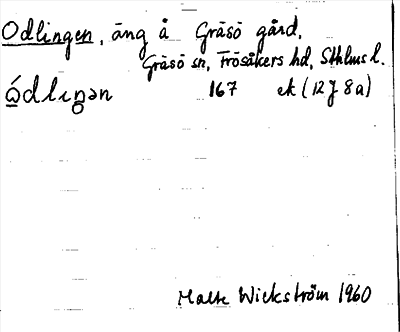 Odlingen, äng å Gräsö gård,
Gräsö sn, Frösåkers hd, Sthlms l.
167 ek (12J 8a)
Malte Wickström 1960